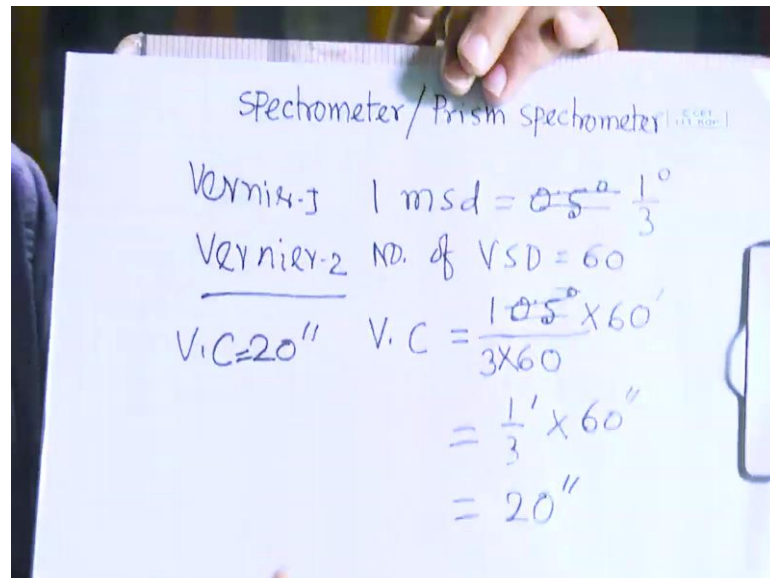 Spectrometer/Prism Spectrometer
Vernier-I 1 msd = 0.5° 1/3°
Vernier-2 NO. of VSD = 60
V.C=20" V.C = 1 0.5° × 60' / 3×60
= 1/3' × 60"
= 20"